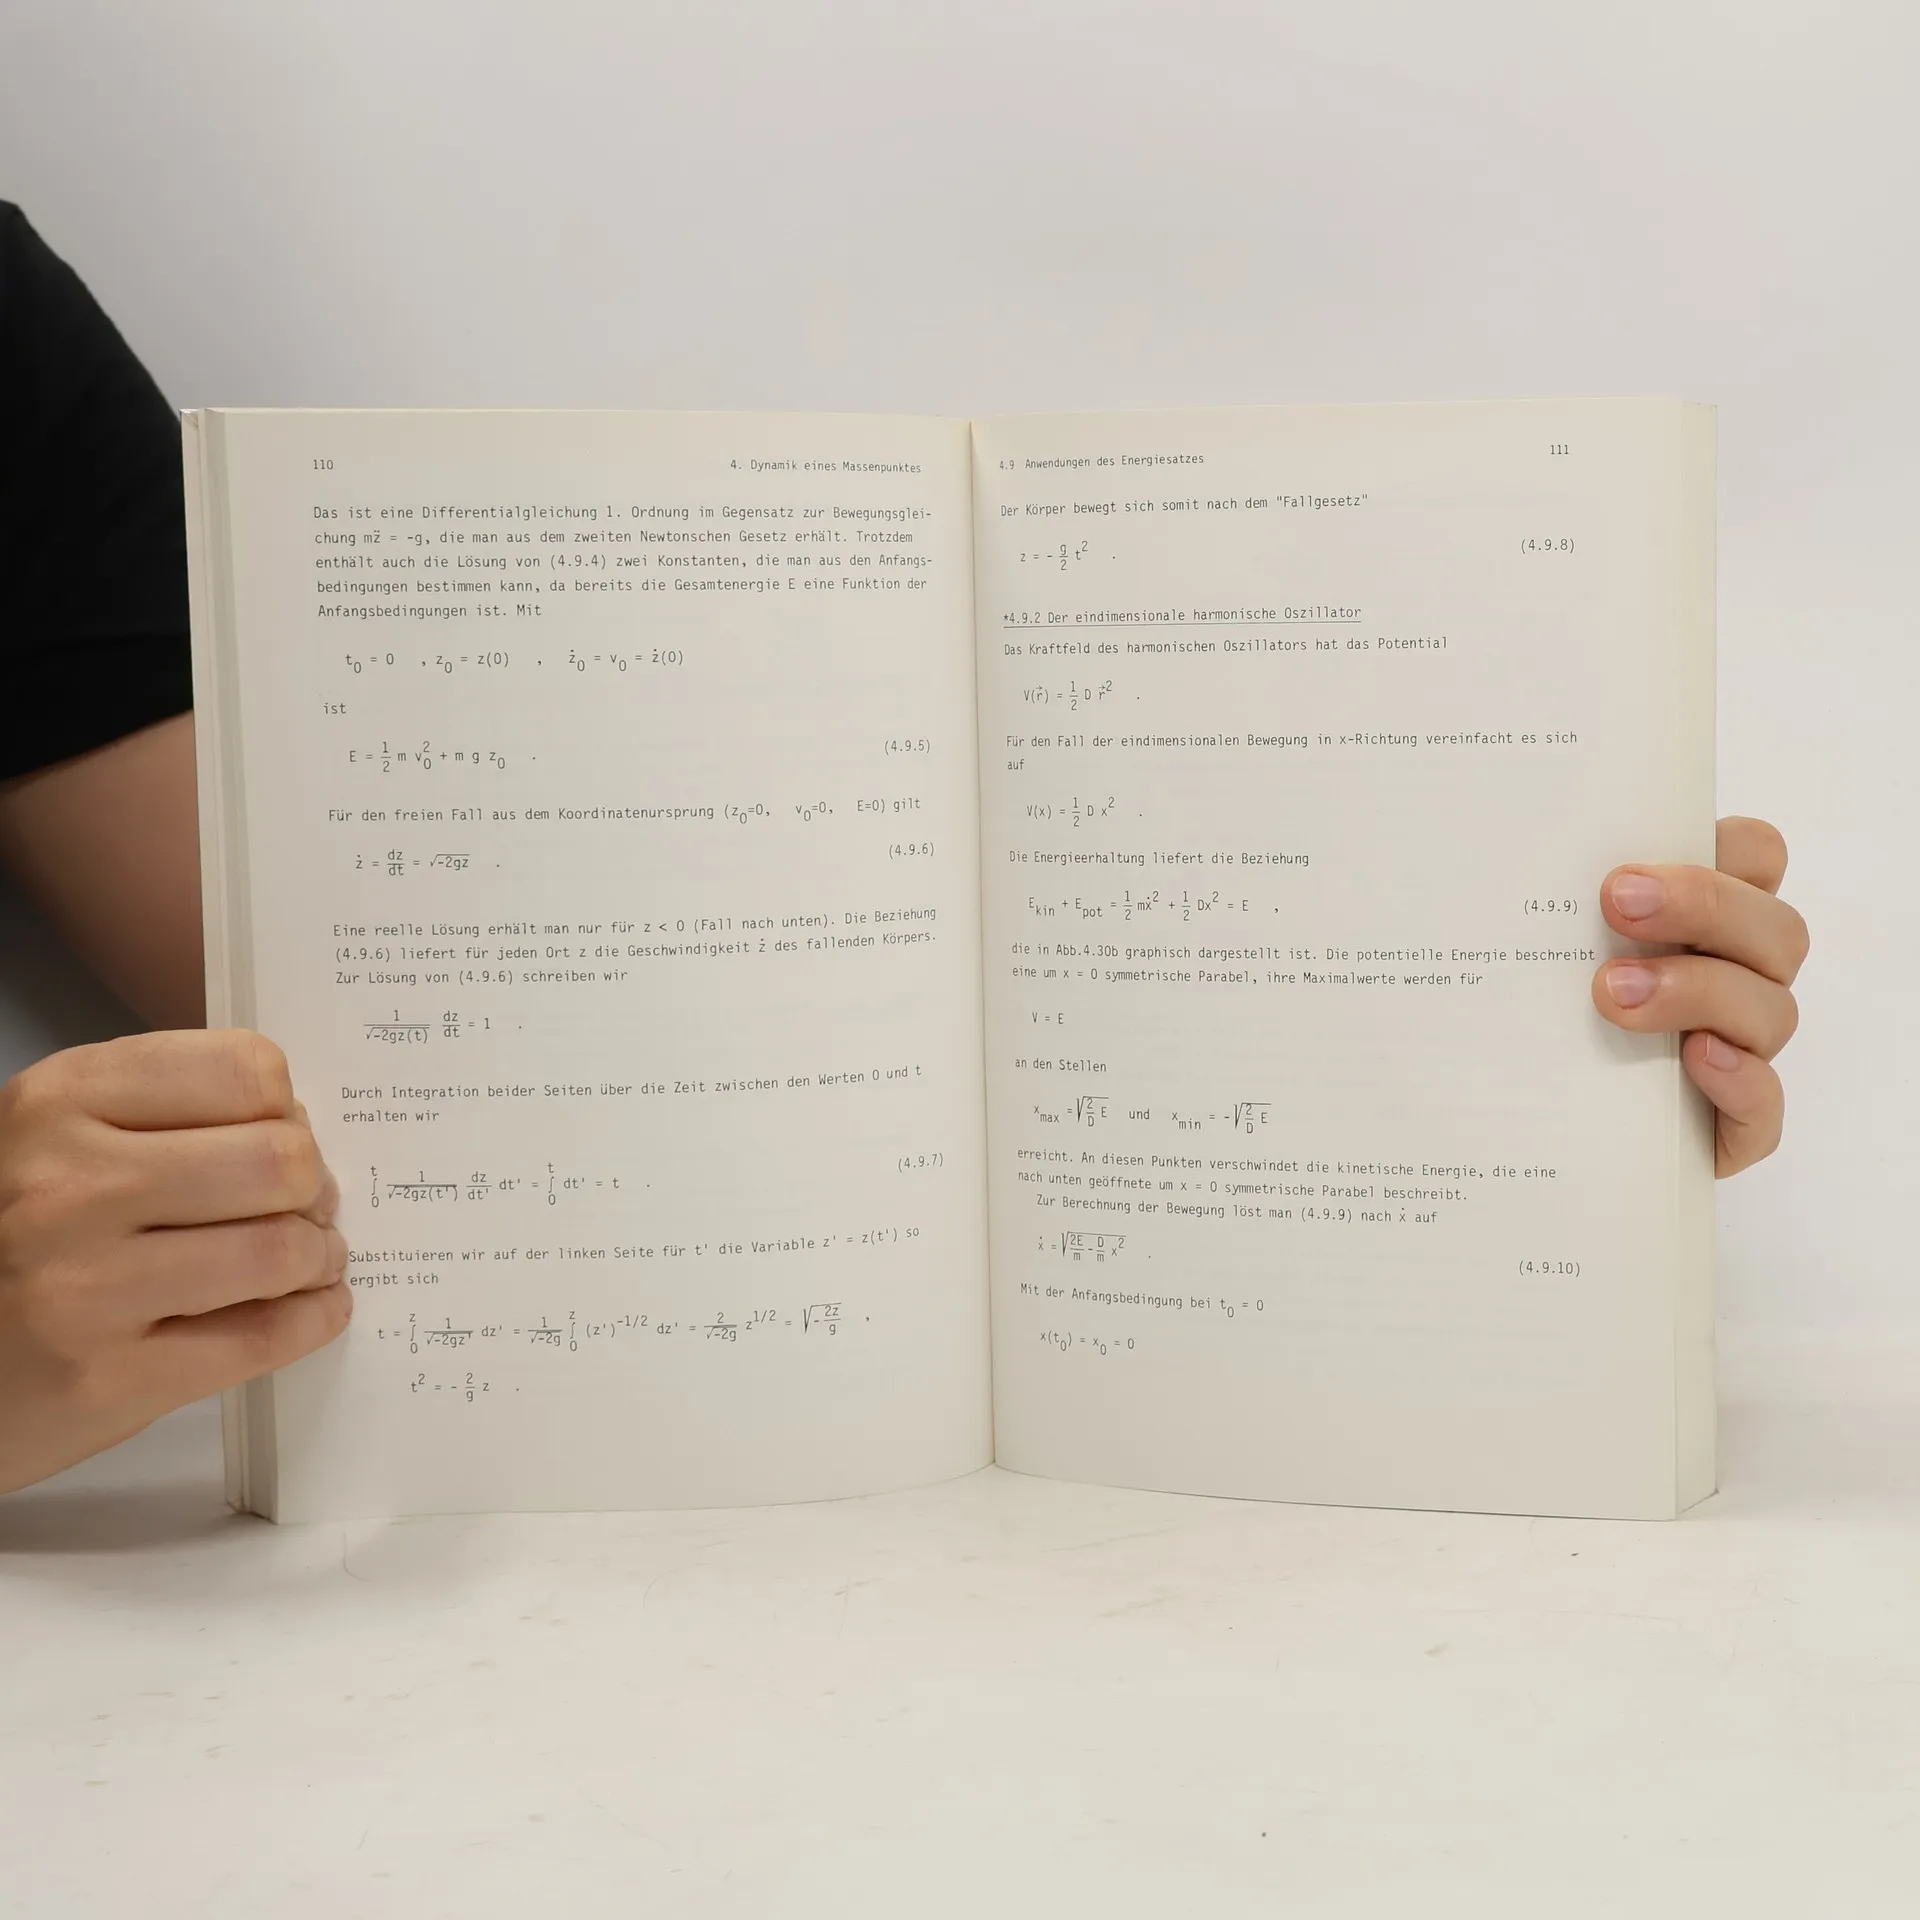 110
4. Dynamik eines Massenpunktes
Das ist eine Differentialgleichung 1. Ordnung im Gegensatz zur Bewegungsglei-
chung mz̈ = -g, die man aus dem zweiten Newtonschen Gesetz erhält. Trotzdem
enthält auch die Lösung von (4.9.4) zwei Konstanten, die man aus den Anfangs-
bedingungen bestimmen kann, da bereits die Gesamtenergie E eine Funktion der
Anfangsbedingungen ist. Mit
t₀ = 0 , z₀ = z(0) , ż₀ = v₀ = ż(0)
ist
E = 1/2 m v₀² + m g z₀ . (4.9.5)
Für den freien Fall aus dem Koordinatenursprung (z₀=0, v₀=0, E=0) gilt
ż = dz/dt = √-2gz . (4.9.6)
Eine reelle Lösung erhält man nur für z < 0 (Fall nach unten). Die Beziehung
(4.9.6) liefert für jeden Ort z die Geschwindigkeit ż des fallenden Körpers.
Zur Lösung von (4.9.6) schreiben wir
1/√-2gz(t) dz/dt = 1 .
Durch Integration beider Seiten über die Zeit zwischen den Werten 0 und t
erhalten wir
∫₀ᵗ 1/√-2gz(t') dz/dt' dt' = ∫₀ᵗ dt' = t . (4.9.7)
Substituieren wir auf der linken Seite für t' die Variable z' = z(t') so
ergibt sich
t = ∫₀ᶻ 1/√-2gz' dz' = 1/√-2g ∫₀ᶻ (z')^-1/2 dz' = 2/√-2g z^1/2 = √(-2z/g) ,
t² = - 2/g z .
4.9 Anwendungen des Energiesatzes
111
Der Körper bewegt sich somit nach dem "Fallgesetz"
z = - g/2 t² . (4.9.8)
*4.9.2 Der eindimensionale harmonische Oszillator
Das Kraftfeld des harmonischen Oszillators hat das Potential
V(r⃗) = 1/2 D r⃗² .
Für den Fall der eindimensionalen Bewegung in x-Richtung vereinfacht es sich
auf
V(x) = 1/2 D x² .
Die Energieerhaltung liefert die Beziehung
E_kin + E_pot = 1/2 mẋ² + 1/2 Dx² = E , (4.9.9)
die in Abb.4.30b graphisch dargestellt ist. Die potentielle Energie beschreibt
eine um x = 0 symmetrische Parabel, ihre Maximalwerte werden für
V = E
an den Stellen
x_max = √(2/D E) und x_min = - √(2/D E)
erreicht. An diesen Punkten verschwindet die kinetische Energie, die eine
nach unten geöffnete um x = 0 symmetrische Parabel beschreibt.
Zur Berechnung der Bewegung löst man (4.9.9) nach ẋ auf
ẋ = √(2E/m - D/m x²) . (4.9.10)
Mit der Anfangsbedingung bei t₀ = 0
x(t₀) = x₀ = 0